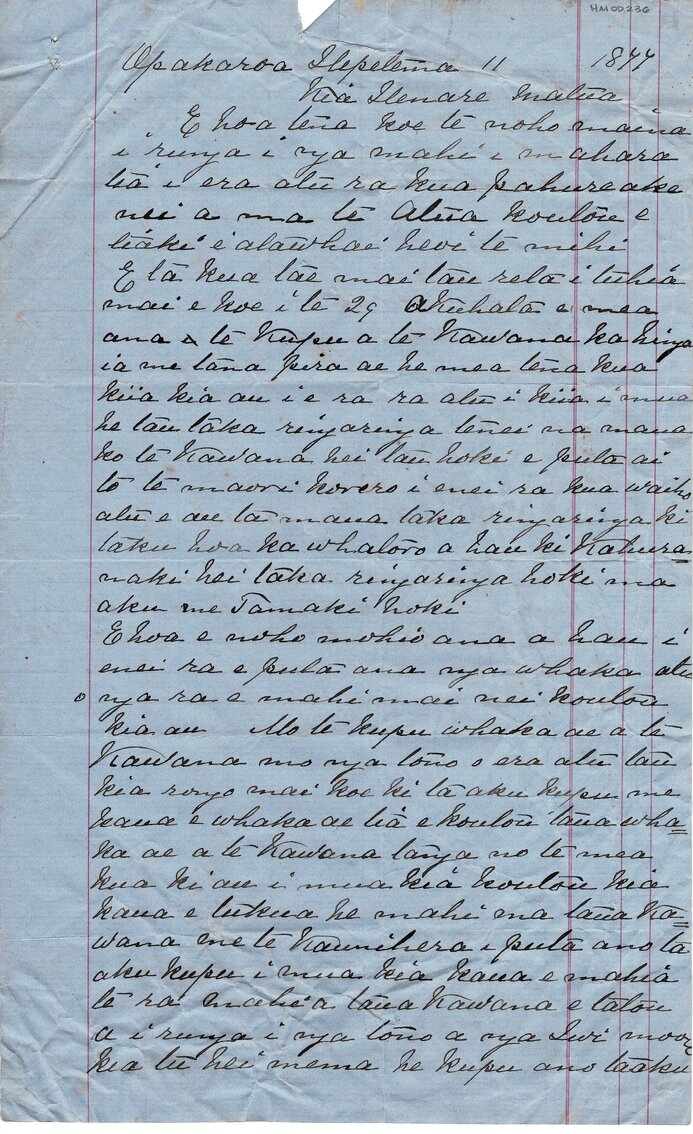 HM00236
Opakaroa Hepetema 11 1877
Kia Henare Matua
E hoa tena koe te noho maina
i runga i nga mahi i mahara
tia i era atu ra kua pahure ake
nei a ma te Atua koutou e
tiaki e atawhai heoi te mihi
E ta kua tae mai tau reta i tuhia
mai e koe i te 29 Akuhata e mea
ana te Kupu a te Kawana ka hinga
ia me tana pira ae he mea tena kua
kiia kia au i e ra ra atu i kiia i mua
he tau taka ringaringa tenei na maua
ko te Kawana hei tau hoki e puta ai
to te maori korero i enei ra kua waiho
atu e au ta maua taka ringaringa ki
taku hoa ka whatoro a hau ki Kahura=
naki hei taka ringaringa hoki ma
aku me Tamaki hoki
E hoa e noho mohio ana a hau i
enei ra e puta ana nga whaka atu
nga ra e mahi mai nei koutou
kia au Mo te kupu whaka ae a te
Kawana mo nga tono o era atu tau
kia rongo mai koe ki ta aku kupu me
kaua e whaka ae tia e koutou taua wha=
ka ae a te Kawana tanga no te mea
kua ki au i mua kia koutou kia
kaua e tukua he mahi ma taua Ka=
wana me te Kaunihera i puta ano ta
aku kupu i mua kia kaua e mahia
te ra mahi a taua Kawana e tatou
a i runga i nga tono a nga Iwi moori
kia tu hei mema he kupu ano taaku